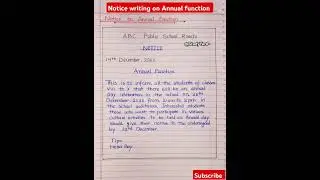 Notice writing on Annual function
Notice on Annual function
ABC Public School Ranchi
NOTICE
14th December, 2022
Annual Function
This is to inform all the students of classes
VI to X that there will be an annual
day celebration in the school on 26th
December, 2022 from
in the school auditorium. Interested students
those who want to participate in various
cultural activities to be held on Annual day
should give their names to the undersigned
by December.
Sign
Head Boy
Subscribe